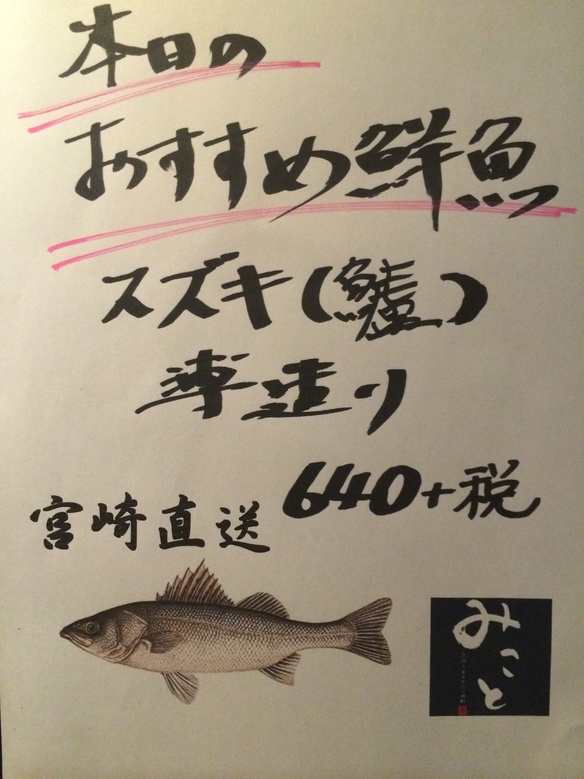 本日の
おすすめ鮮魚
スズキ(鱸)
薄造り
640+税
宮崎直送
みこと